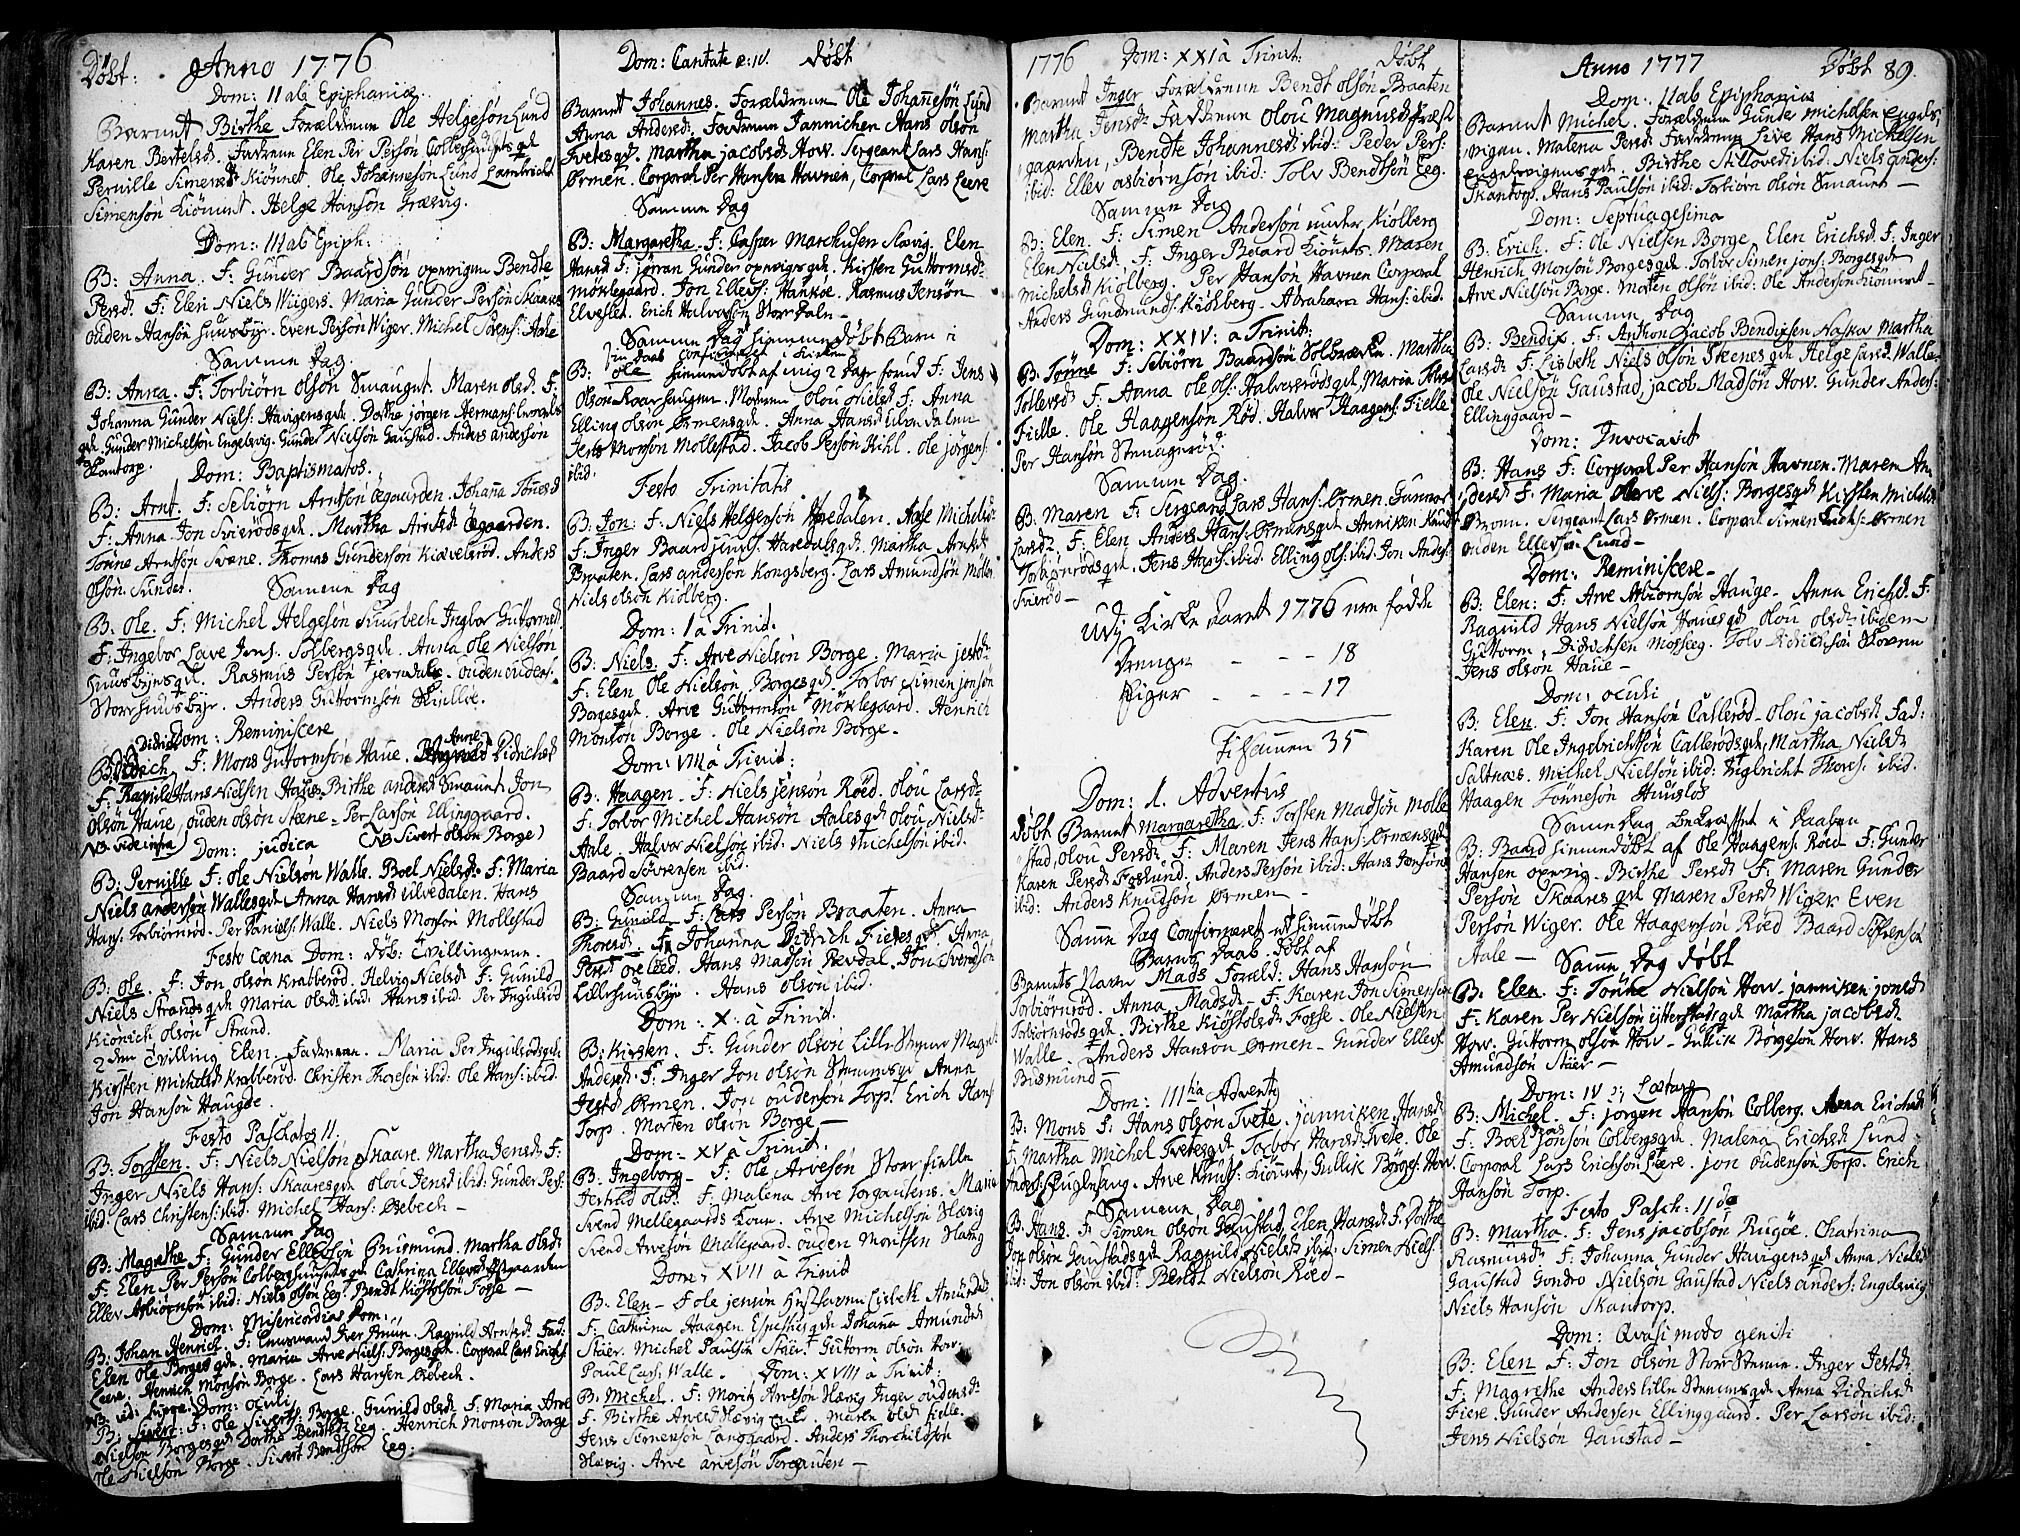 Døbt: Anno 1776
Dom: II ab Epiphaniæ.
Barnet Birthe Forældrene Ole Helgesøn Lund
Karen Bertelsd. Fadrene Elen Per Persøn
Pernille Simens Kiønnet. Ole Johannesøn Lund
Simensøn Kiönnet. Helge Hansøn Græsvig.
Dom: III ab Epiph:
B: Anna. F: Gunder Baardsøn opnvigen Bendte
Persd. F: Elen Niels Wigers. Maria Gunder Persøn Skaares
ouden Hansøn Huusbyr. Even Persøn Wiger. Michel Sørens: Aale
Samme Dag.
B: Anna. F: Torbiørn olsøn Smaugnt. Maren olsd. F:
Johanna Gunder Niels: Havigensgd. Dorthe jørgen Hermans:
gd. Gunder Michelsøn Engelsvig. Gunder Nielsøn Gaustad. Anders andersøn
Skantorp.
Dom: Baptismatos.
B: Arnt. F: Sebiørn Arntsøn Øegaarden. Johanna Tønnesd
F: Anna Jon Svierødsgd. Martha Arntsd Øegaarden.
Tønne Arntsøn Svæne. Thomas Gundersøn Kiævelsrød. Anders
olsøn Sundet.
Samme Dag
B: Ole. F: Michel Helgesøn Ingbor Guttormsd
F: Ingebor Lave Jens. Solbergsgd. Anna Ole Nielsøn
Huusbynsgd. Rasmus Persøn jerndale. ouden ouders:
Storrhuusbyr. Anders Guttormsøn Skillie.
Dom: Reminiscere
B: Didrich F: Mons Guttormsøn Haue. Anne Didrichsd
F: Ragnild Hans Nielsen Haues Birthe andersd Smaunt Jon
Olsøn Haue, ouden olsøn Skene. Per Larsøn Ellinggaard.
NB vide infra) Dom: judica (NB Sivert olsøn Borge)
B: Pernille F: Ole Nielsøn Walle. Boel Nielsd. F: Maria
Niels andersøn Wallesgd Anna Hansd Ulvedalen. Hans
Hans: Torbiørnrød. Per Daniels: Walle. Niels Monsøn Mollestad
Festo Cæna Dom: døb: Tvillingerne.
B: Ole. F: Jon olsøn Krabberød. Helvig Nielsd F: Gunild
Niels Strandsgd Maria olsd ibid. Hans ibid. Per Ingulsrød
Kiønich olsøn Strand.
2den Tvilling Elen. Fadrene. Maria Per Ingulsrødsgd.
Kirsten Michelsd Krabberød. Christen Thoresøn ibid: Ole Hans: ibid.
Jon Hansøn Haugse.
Festo Paschatos II.
B: Torsten. F: Niels Nielsøn Skaare. Martha Jensd. F:
Inger Niels Hans: Skaaresgd olou Jensd ibid: Gunder Pers:
ibid: Lars Christens: ibid: Michel Hans: Øebech
Samme Dag
B: Magrethe F: Gunder Ellevsøn Bismund. Martha olsd.
F: Elen Per Persøn Colberghuusetsgd Cathrina Ellevsd Østgaarden
Ellev Asbiørnsøn ibid: Niels olsøn Eeg. Bendt Kiøstolsøn Fosse
Dom: Misericordias Dom:
B: Johan Henrich. F: Iver Amun. Ragnild Arntsd. Fad:
Elen Ole Borgesgd. Maria Arve Niels: Borgesgd. Corporal Lars Erichs:
Leere. Henrich Monsøn Borge. Lars Hansen Øebech.
NB vid: supra: Dom: oculi
B: Sivert: F: ole Siverts: Borge. Gunild olsd. F: Maria Arve
Nielsøn Borgesgd Dorthe Bendtsd Eeg. Henrich Monsøn Borge
Ole Nielsøn Borge. Sivert Bendtsøn Eeg.
Dom: Cantate e:IV. Døbt
Barnet Johannes. Forældrene Ole Johannesøn Lund
Anna Andersd. Fadrene Jannichen Hans olsøn
Tvetesgd. Martha jacobsd How. Sergeant Lars Hans:
Ørmen. Corporal Per Hansen Havnen, Corporal Lars Leere
Samme Dag
B: Margaretha. F: Casper Marchusen Slævig. Elen
Hansd F: jørran Gunder opnvigsgd. Kirsten Guttormsd.
Møklegaard. Jon Ellevs: Hankøe. Rasmus Jensøn
Elveslet. Erich Halvorsøn StorrDaln
Samme Dag hiemme døbt Barn i
sin daab confirmeret i Kirken
B: Ole hiemmedøbt af mig 2 Dage forud F: Jens
Olsøn Roerhaugen. Moderen Olou Nielsd F: Anna
Elling olsøn Ørmensgd. Anna Hansd Ulvedalen
Jens Monsøn Mollestad. Jacob Persøn Kihl. Ole jørgens:
ibid.
Festo Trinitatis.
B: Jon: F: Niels Helgesøn Haredalen. Aase Michelsd.
F: Inger Baard jens: Haredalsgd. Martha Arntsd
Braaten. Lars andersøn Kongsberg. Lars Amundsøn
Niels olsøn Kiølberg.
Dom: I à Trinit.
B: Niels. F: Arve Nielsøn Borge. Maria jestsd.
F: Elen Ole Nielsøn Borgesgd. Torbor Simen jonsøn
Borgesgd. Arve Guttormsøn Møklegaard. Henrich
Monsøn Borge. Ole Nielsøn Borge.
Dom: VIII à Trinit:
B: Haagen. F: Niels jensøn Røed. Olou Larsd.
F: Torbor Michel Hansøn Aalesgd. Olou Nielsd.
Aale. Halvor Nielsøn ibid. Niels Michelsøn ibid.
Baard Sövrensen ibid.
Samme Dag.
B: Gunild. F: Lars Persøn Braaten. Anna
Thoresd. F: Johanna Didrich Fieresgd. Anna
Persd Hans Madsøn Jon Svensøn
Lillehuusbye. Hans olsøn ibid.
Dom: X: à Trinit.
B: Kirsten. F: Gunder olsøn Lille
Andersd. F: Inger Jon olsøn Anna
Jestd Ørmen. Jon oudensøn Torp. Erich Hans
Torp. Morten olsøn Borge
Dom: XV à Trinit.
B: Ingeborg F: Ole Arvesøn Storrfielle
Jestrud olsd. F: Malena Arve Torgautens. Maria
Svend Mellegaards Kone. Arve Michelsøn Slævig
Svend Arvesøn Mellegaard. ouden Moritsen Slævig
Dom: XVII à Trinit
B: Elen F ole jensøn Lisbeth Amunds
F: Cathrina Haagen Johana Amundsd
Støer. Michel Paulsøn Støer. Guttorm olsøn How.
Paul Lars: Walle. Dom: XVIII à Trinit:
B: Michel. F: Moritz Arvesøn Slævig Inger oudensd.
F: Birthe Arvesd Slævig Maren olsd Fielle.
Jens Simensøn Langgaard. Anders Thorchildsøn
Slævig. Arve arvesøn Torgauten
1776 Dom: XXI à Trinit: Døbt
Barnet Inger Forældrene Bendt olsøn Braaten
Martha Jensd. Fadrene olou Magnusd Præst
gaarden, Bendte Johannesd ibid: Peder Pers:
ibid: Ellev asbiørnsøn ibid: Tolv Bendtsøn Eeg.
Samme Dag
B: Elen. F: Simen Andersøn under Kiølberg
Elen Nielsd. F: Inger Maren
Michelsd Kiølberg. Per Hansøn Havnen Corporal
Anders Gundmunds: Kiølberg. Abraham Hans: ibid.
Dom: XXIV: a Trinit:
B: Tønne F: Sebiørn Baardsøn Solbrække. Martha
Tollevsd F: Anna Ole ols: Halvorsrødsgd, Maria
Fielle. Ole Haagensøn Rød. Halvor Haagens: Fielle
Per Hansøn Stenagerød.
Samme Dag.
B: Maren F: Sergeang Lars Hans: Ørmen. Gunnor
Larsd. F: Elen Anders Hans: Ørmensgd Anniken Knud
Torbiørnrødsgd. Jens Hans: ibid. Elling ols: ibid. Jon Anders:
Svierød
Udj Kirke Aaret 1776 ere fødde
Drenge - - - 18
Piger - - - 17
Tilsammen 35
Dom: 1. Adventus
døbt Barnet Margaretha. F: Torsten Madsøn Molle
stad, olou Persd. F: Maren Jens Hans: Ørmensgd
Karen Persd Foslund. Anders Persøn ibid: Hans Jonsøn
ibid: Anders Knudsøn Ørmen
Samme Dag Confirmeret et hiemmedøbt
Barns Daab. døbt af
Barnets Navn Mads Foræld: Hans Hansøn
Torbiørnrød. Anna Madsd F: Karen Jon Simensen
Torbiørnrødsgd. Birthe Kiøstolsd Fosse. Ole Nielsen
Walle. Anders Hansøn Ørmen. Gunder Ellevs:
Bismund
Dom: IIItia Adventg
B: Mons F: Hans olsøn Tvete. janniken Hansd
F. Martha Michel Tvetesgd. Torbor Hansd Tvete. Ole
Fuglevang. Arve Knuts: Kiønnet, Gullik Børges: How
Samme Dag
B: Hans. F. Simen olsøn Gaustad, Elen Hansd. F. Dorthe
Jon olsøn Gaustadsgd. Ragnild Nielsd ibid: Simen Niels:
ibid: Jon olsøn ibid: Bendt Nielsøn Røed
Anno 1777 Døbt 89.
Dom: II ab Epiphania
Barnet Michel. Forældrene Gunder Michelsen Engels
vigen. Malena Persd. Fadrene Live Hans Michelsen
Engelsvigensgd. Birthe ibid: Niels anders:
Skantorp. Hans Paulsøn ibid: Torbiørn olsøn Smaunt
Dom: Septuagesima
B: Erich. F: Ole Nielsen Borge Elen Erichsd. F: Inger
Henrich Monsøn Borgesgd. Torbor Simen jons: Borgesgd
Arve Nielsøn Borge. Morten olsøn ibid: Ole Andersøn Kiönnet
Samme Dag
B: Bendix. F: Anthon Jacob Bendixsen Martha
Larsd. F: Lisbeth Niels olsøn Skenesgd. Helge Larsd. Walle.
Ole Nielsøn Gaustad, jacob Madsøn How. Gunder Anders:
Ellinggaard
Dom: Invocavit
B: Hans F: Corporal Per Hansøn Havnen. Maren An
dersd F: Maria Arve Niels: Borgesgd Kirsten Michelsd
Bronn. Sergeant Lars Ørmen. Corporal Simen Erichs: Ørmen
ouden Ellevsøn Lund
Dom: Reminiscere
B: Elen: F: Arve Asbiørnsøn Hauge. Anna Erichsd. F.
Ragnild Hans Nielsøn Hauesgd. Olou olsd ibidem
Guttorm Didrichsen Mosseeg. Tolv Didrichsøn
Jens olsøn Haue
Dom: oculi
B: Elen. F: Jon Hansøn Callerød. Olou jacobsd. Fad:
Karen Ole Ingelrichtsøn Callerødsgd, Martha Nielsd
Saltnæs. Michel Nielsøn ibid: Ingbricht Thores: ibid.
Haagen Tønnesøn Huuslos
Samme dag bekræftet i Daaben
B: Baard hiemmedøbt af Ole Haagens: Røed F: Gunder
Hansen opnvig. Birthe Persd F: Maren Gunder
Persøn Skaares gd Maren Persd Wiger Even
Persøn Wiger. Ole Haagensøn Røed Baard Söfrensen
Aale
Samme Dag døbt
B: Elen. F: Tønne Nielsøn How. janniken jonsd.
F: Karen Per Nielsøn Martha jacobsd.
How. Guttorm olsøn How. Gullik Børgesøn How. Hans
Amundsøn Støer
Dom: IV: Lætare
B: Michel. F: jørgen Hansøn Colberg. Anna Erichsd
F: Boel jonsøn Colbergsgd. Malena Erichsd Lund
Corporal Lars Erichsøn Leere. jon oudensøn Torp. Erich
Hansøn Torp.
Festo Pasch: II da
B: Martha. F: Jens jacobsøn Rugøe. Chatrina
Rasmusd. F: Johanna Gunder Havigensgd Anna Nielsd
Gaustad Gondro Nielsøn Gaustad Niels anders: Engelsvig
Niels Hansøn Skantorp.
Dom: Qvasimodo geniti
B: Elen F: Jon olsøn Inger Jestd.
F: Magrethe Anders Anna Didrichsd
Fiere. Gunder Andersen Ellinggaard. Per Larsøn ibid:
Jens Nielsøn Gaustad